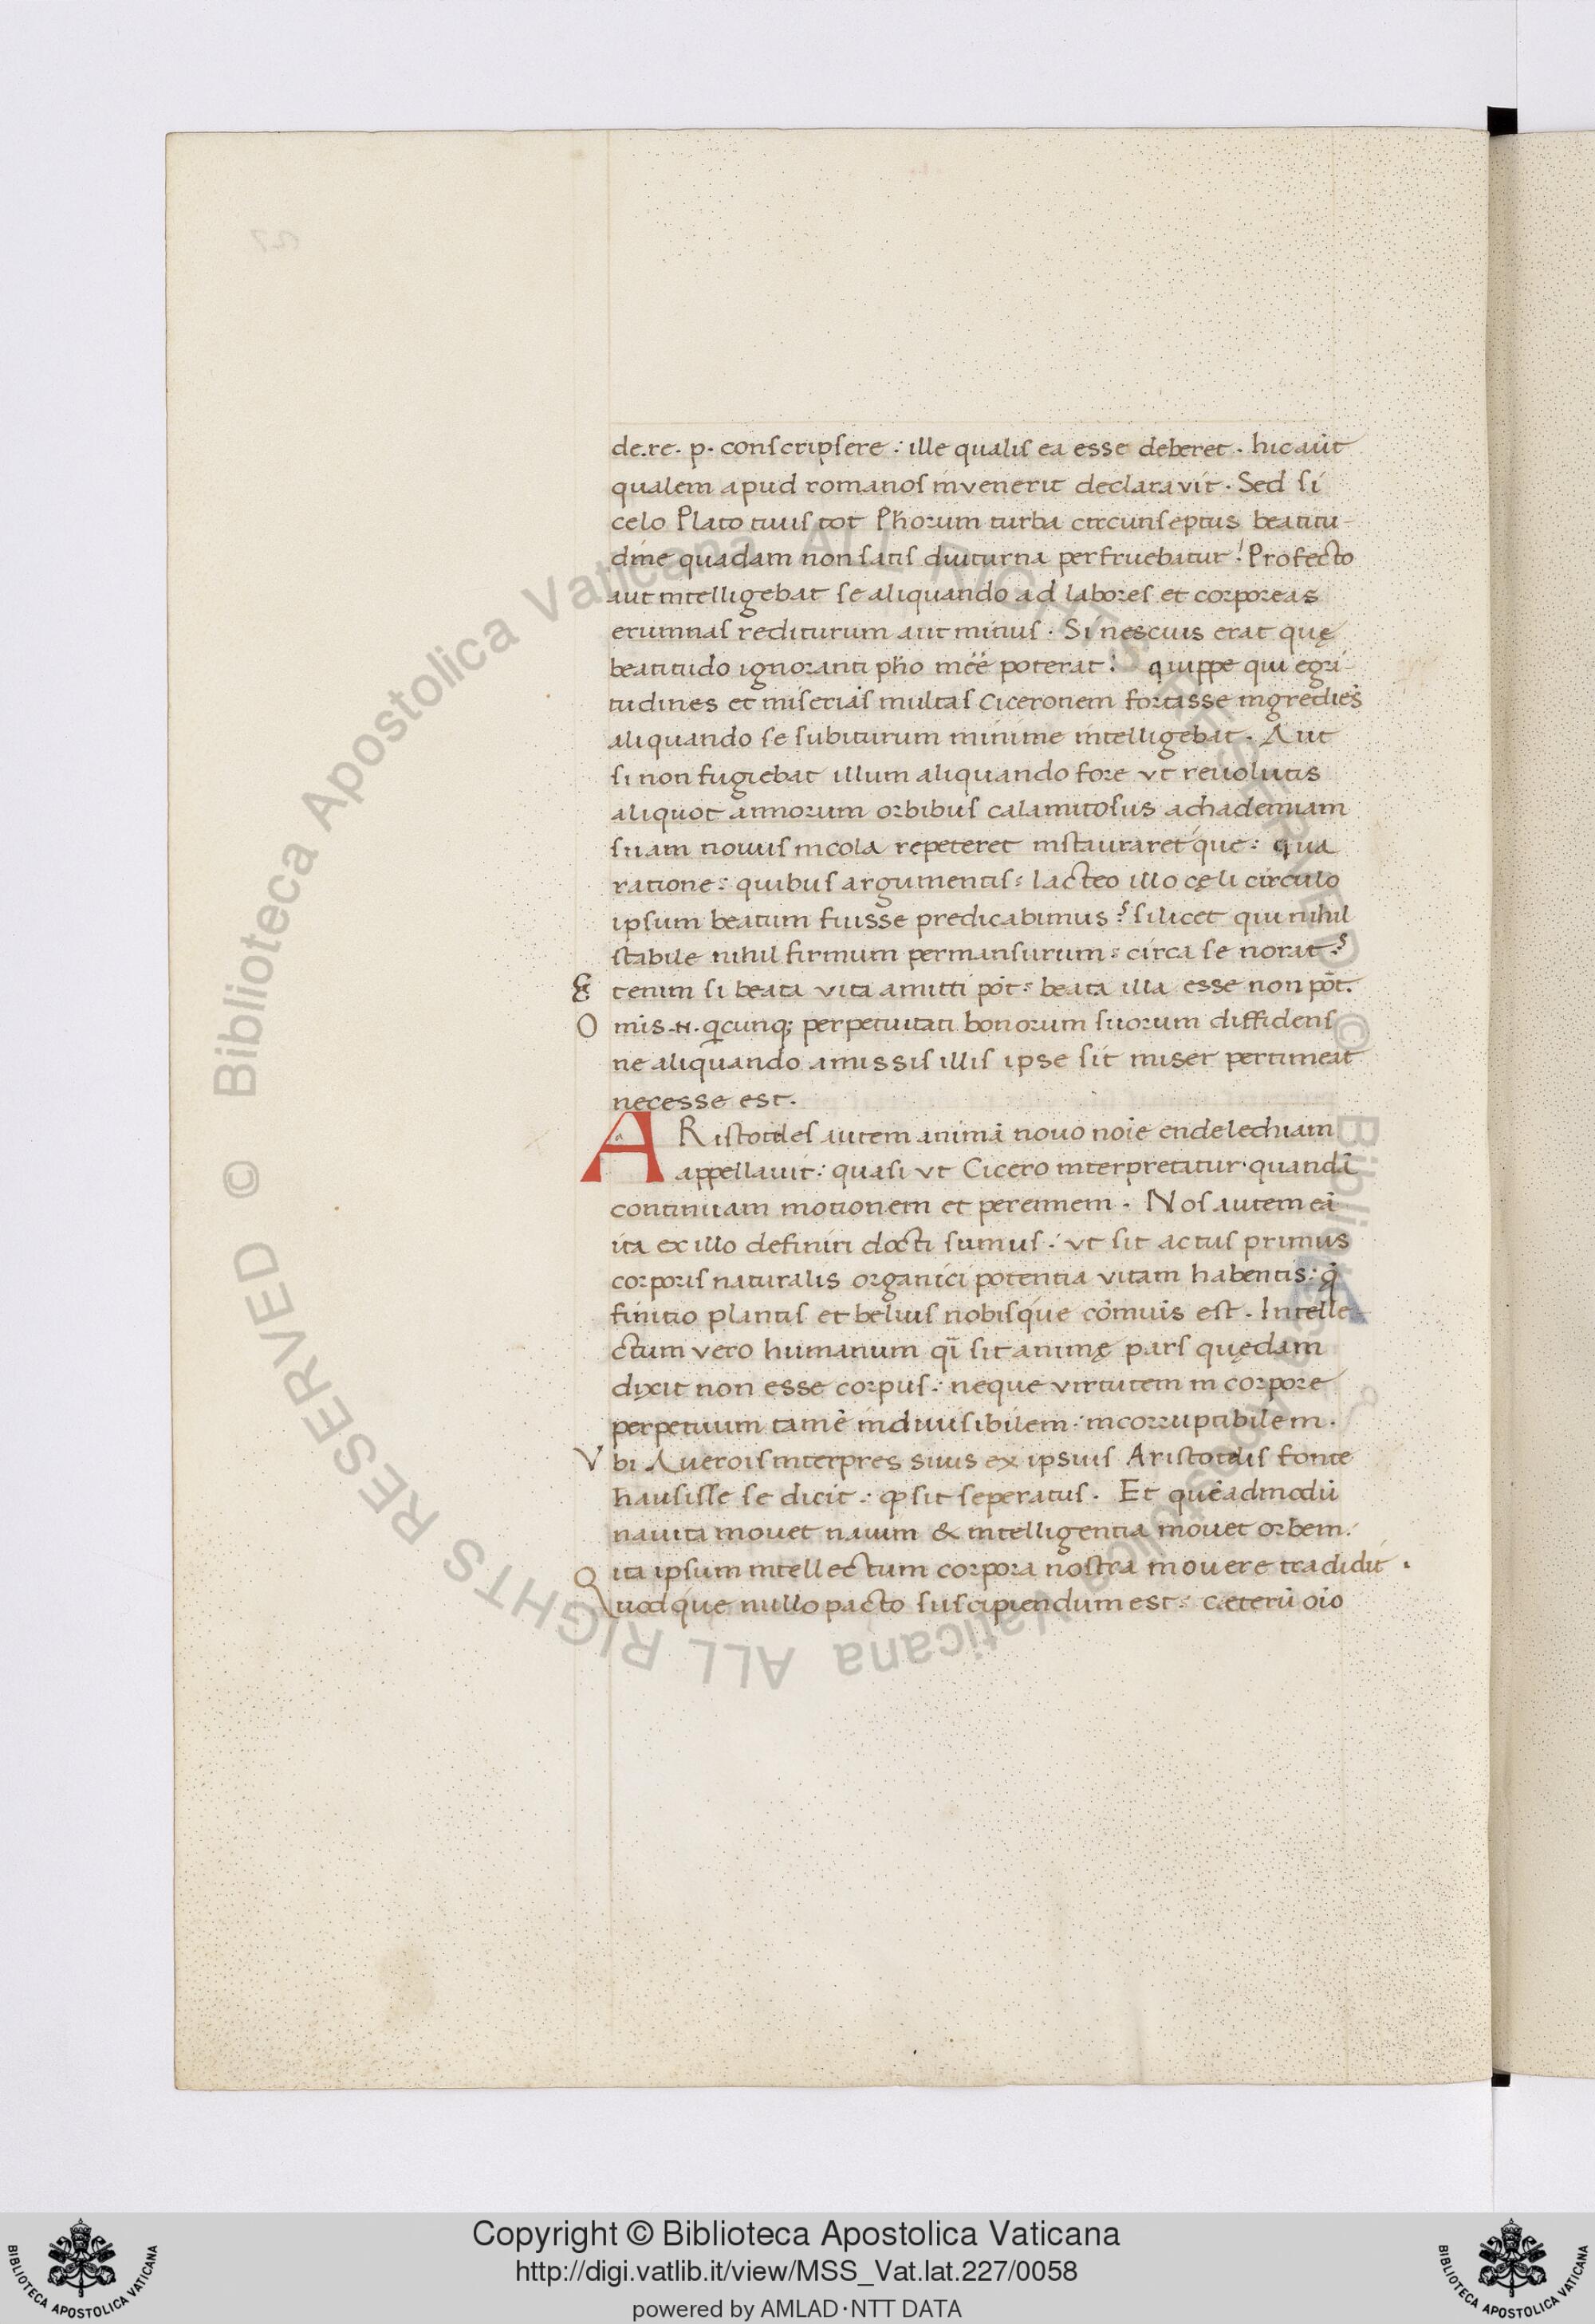 de.re. p. conscripsere : ille qualis ea esse deberet . hic aut̄
qualem apud romanos invenerit declaravit . Sed si
celo Plato tuus tot Ph̄orum turba circunseptus beatitu-
dine quadam non satis diuturna perfruebatur ! Profecto
aut intelligebat se aliquando ad labores et corporeas
erumnas rediturum aut minus . Si nescius erat quę
beatitudo ignoranti ph̄o inēē poterat ! quippe qui egri-
tudines et miserias multas Ciceronem fortasse ingrediēs
aliquando se subiturum minime intelligebat . Aut
si non fugiebat illum aliquando fore vt reuolutis
aliquot annorum orbibus calamitosus achademiam
suam nouus incola repeteret instauraretque : qua
ratione : quibus argumentis : lacteo illo cęli circulo
ipsum beatum fuisse predicabimus ? silicet qui nihil
stabile nihil firmum permansurum : circa se norat ?
Etenim si beata vita amitti pōt : beata illa esse non pōt.
Omis .N. qcunq; perpetuitati bonorum suorum diffidens
ne aliquando amissis illis ipse sit miser pertimeat
necesse est.
ARistoteles autem animā nouo noīe endelechiam
appellauit : quasi vt Cicero interpretatur . quandā
continuam motionem et perennem . Nos autem eā
ita ex illo definiri docti sumus : vt sit actus primus
corporis naturalis organici potentia vitam habentis : q̄
finitio plantis et beluis nobisque cōmuis est . Intelle-
ctum vero humanum qī sit animę pars quędam
dixit non esse corpus : neque virtutem in corpore
perpetuum tamē indiuisibilem : incorruptibilem .
Vbi Auerois interpres suus ex ipsius Aristotelis fonte
hausisse se dicit : ꝙ sit seperatus . Et quēadmodū
nauita mouet nauim & intelligentia mouet orbem :
ita ipsum intellectum corpora nostra mouere tradidit .
Quodque nullo pacto suscipiendum est : cæterū oīo
© Biblioteca Apostolica Vaticana ALL RIGHTS RESERVED © Biblioteca Apostolica Vaticana ALL RIGHTS RESERVED
Copyright © Biblioteca Apostolica Vaticana
http://digi.vatlib.it/view/MSS_Vat.lat.227/0058
powered by AMLAD·NTT DATA
BIBLIOTECA APOSTOLICA VATICANA
BIBLIOTECA APOSTOLICA VATICANA